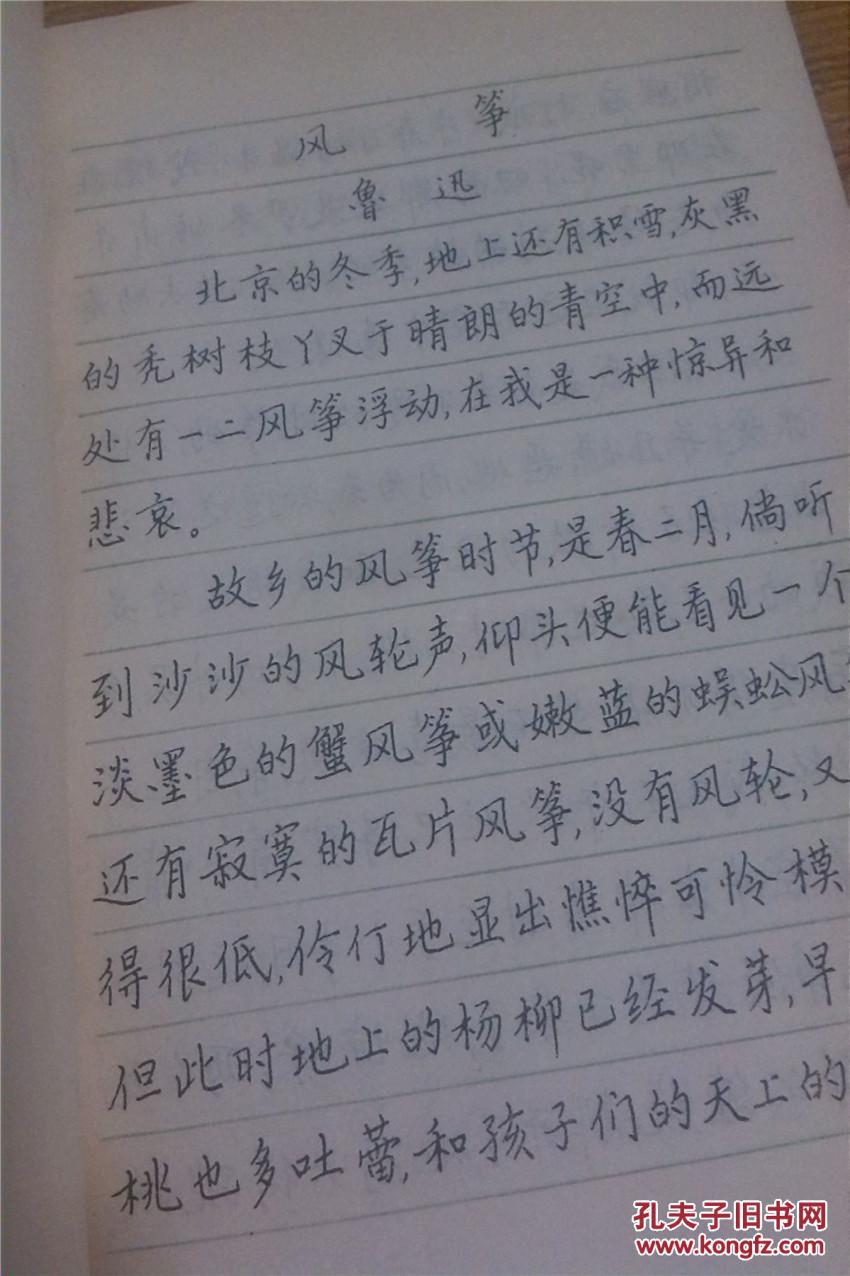 风 筝
鲁迅
北京的冬季,地上还有积雪,灰黑
的秃树枝丫叉于晴朗的青空中,而远
处有一二风筝浮动,在我是一种惊异和
悲哀。
故乡的风筝时节,是春二月,倘听
到沙沙的风轮声,仰头便能看见一个
淡墨色的蟹风筝或嫩蓝的蜈蚣风
还有寂寞的瓦片风筝,没有风轮,又
得很低,伶仃地显出憔悴可怜模
但此时地上的杨柳已经发芽,早
桃也多吐蕾,和孩子们的天上的
孔夫子旧书网
www.kongfz.com